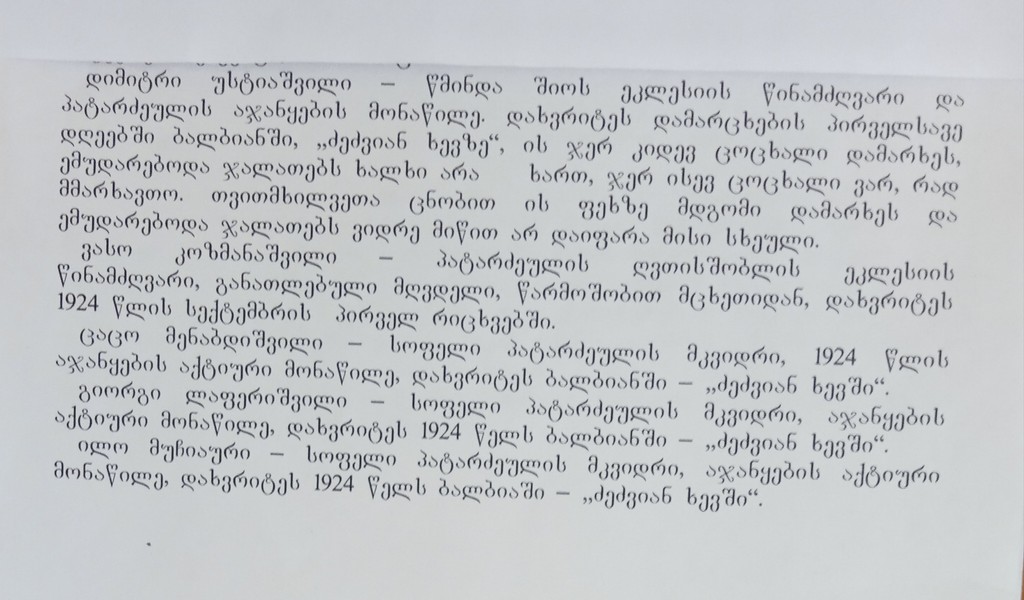 დიმიტრი უსტიაშვილი – წმინდა შიოს ეკლესიის წინამძღვარი და
პატარძეულის აჯანყების მონაწილე. დახვრიტეს დამარცხების პირველსავე
დღეებში ბალბიანში, „ძეძვიან ხევზე“, ის ჯერ კიდევ ცოცხალი დამარხეს,
ემუდარებოდა ჯალათებს ხალხი არა ხართ, ჯერ ისევ ცოცხალი ვარ, რად
მმარხავთო. თვითმხილველთა ცნობით ის ფეხზე მდგომი დამარხეს და
ემუდარებოდა ჯალათებს ვიდრე მიწით არ დაიფარა მისი სხეული.
ვასო კოზმანაშვილი – პატარძეულის ღვთისშობლის ეკლესიის
წინამძღვარი, განათლებული მღვდელი, წარმოშობით მცხეთიდან, დახვრიტეს
1924 წლის სექტემბრის პირველ რიცხვებში.
ცაცო მენაბდიშვილი – სოფელი პატარძეულის მკვიდრი, 1924 წლის
აჯანყების აქტიური მონაწილე, დახვრიტეს ბალბიანში – „ძეძვიან ხევში“.
გიორგი ლაფერიშვილი – სოფელი პატარძეულის მკვიდრი, აჯანყების
აქტიური მონაწილე, დახვრიტეს 1924 წელს ბალბიანში – „ძეძვიან ხევში“.
ილო მუჩიაური – სოფელი პატარძეულის მკვიდრი, აჯანყების აქტიური
მონაწილე, დახვრიტეს 1924 წელს ბალბიაში – „ძეძვიან ხევში“.